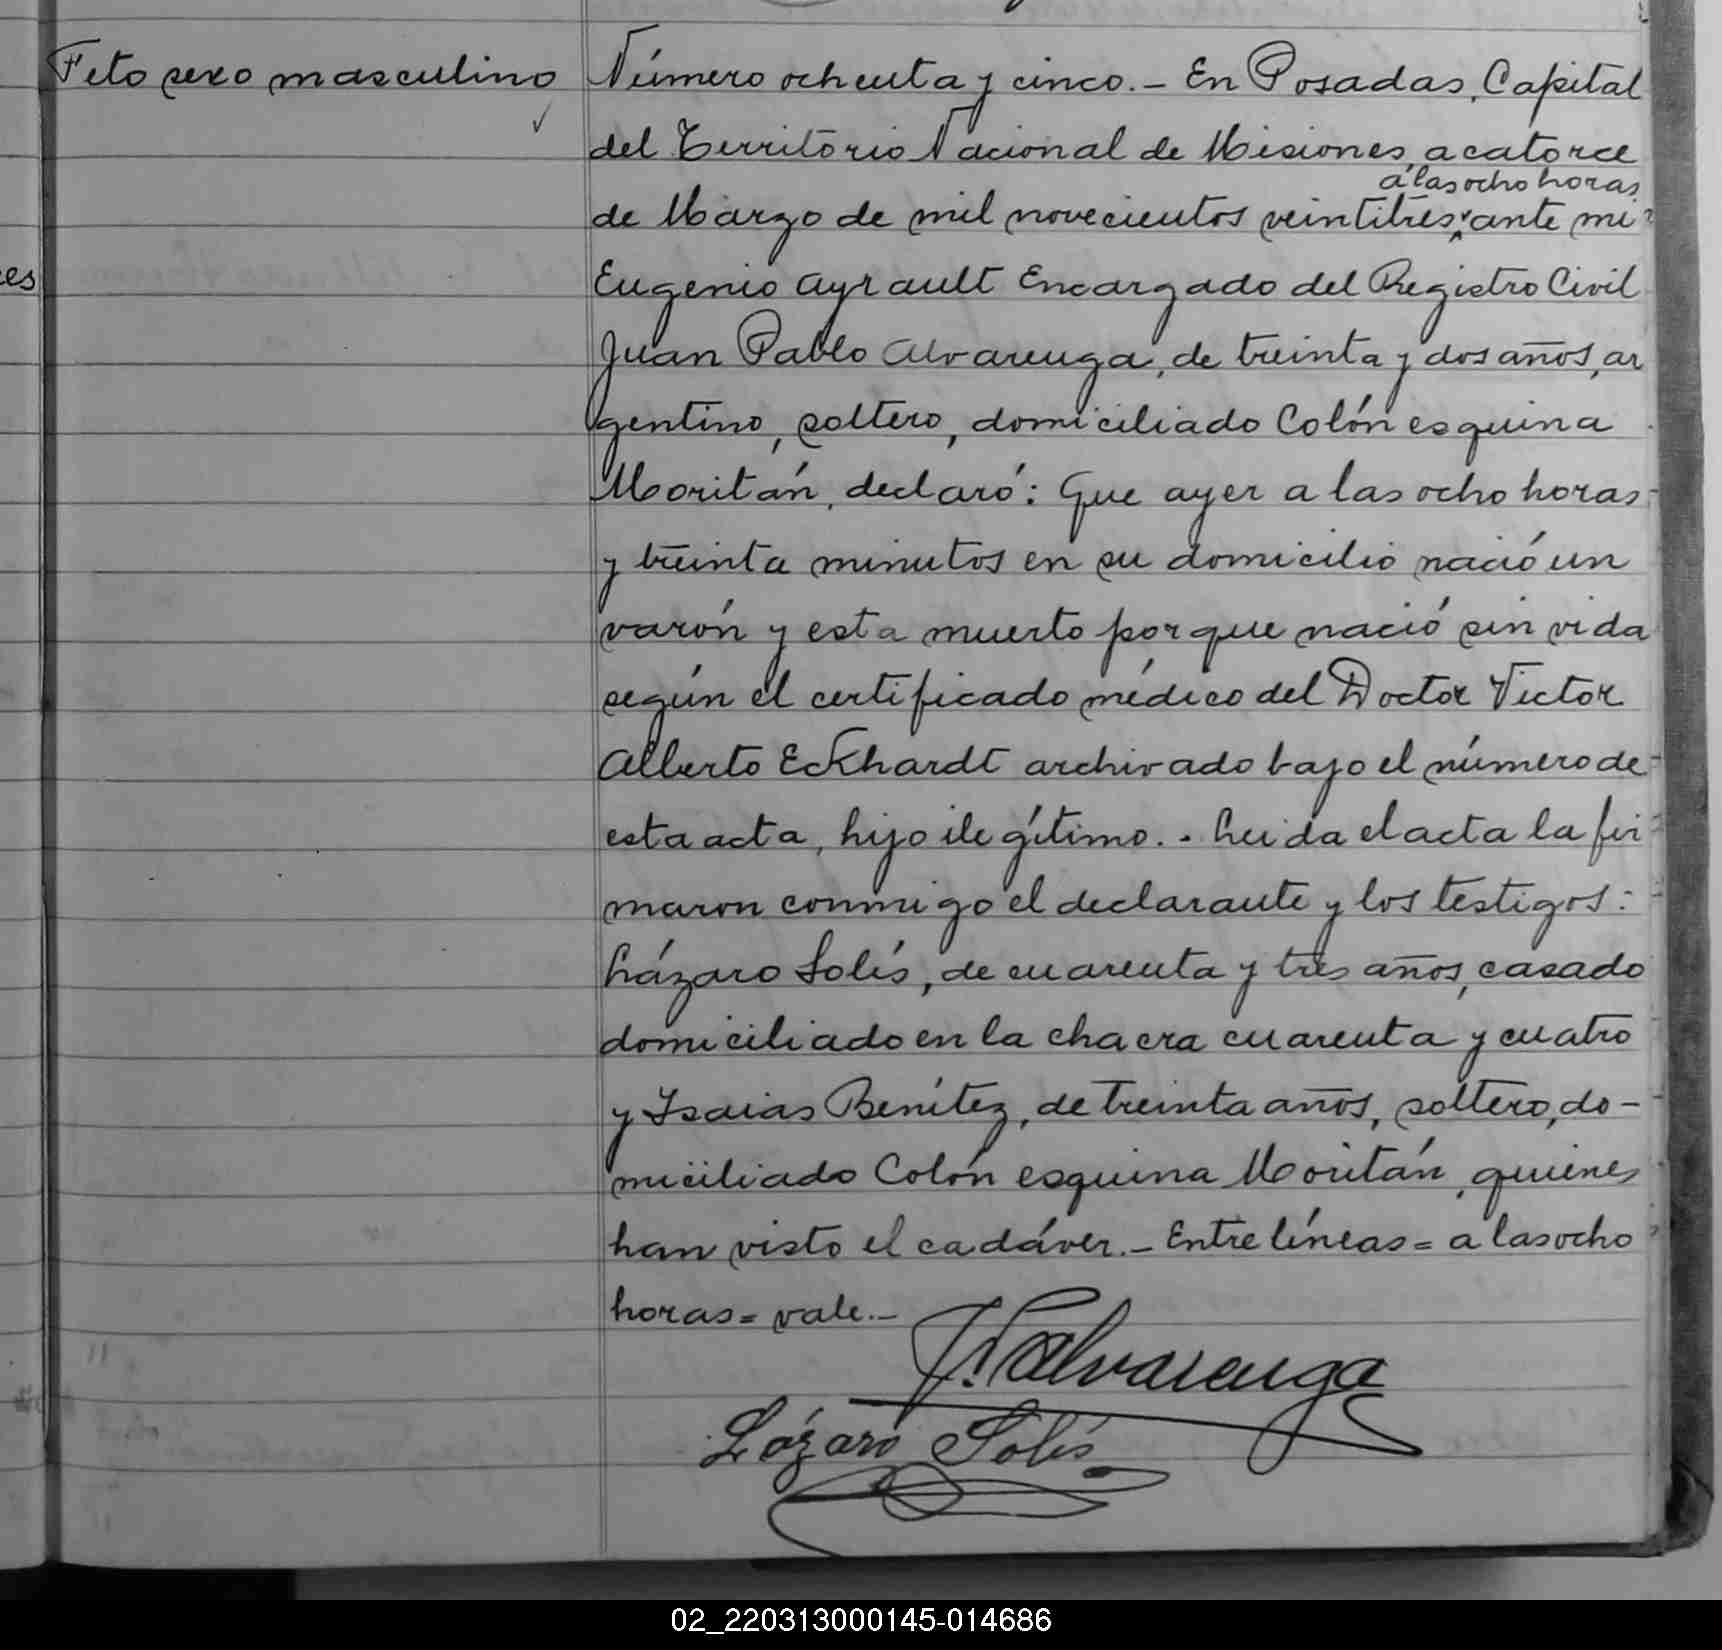 Feto sexo masculino
Número ochenta y cinco. - En Posadas, Capital
del Territorio Nacional de Misiones, a catorce
a las ocho horas
de Marzo de mil novecientos veintitres, ante mi
Eugenio Ayrault Encargado del Registro Civil
Juan Pablo Alvarenga, de treinta y dos años, ar
gentino, soltero, domiciliado Colón esquina
Moritán, declaró: Que ayer a las ocho horas
y treinta minutos en su domicilio nació un
varón y esta muerto porque nació sin vida
según el certificado médico del Doctor Victor
Alberto Eckhardt archivado bajo el número de
esta acta, hijo ilegítimo. - Leida el acta la fir
maron conmigo el declarante y los testigos:
Lázaro Solís, de cuarenta y tres años, casado
domiciliado en la chacra cuarenta y cuatro
y Isaias Benítez, de treinta años, soltero, do-
miciliado Colón esquina Moritán, quienes
han visto el cadáver. - Entre líneas = a las ocho
horas = vale. -
J. P. Alvarenga
Lázaro Solís
es
02_220313000145-014686